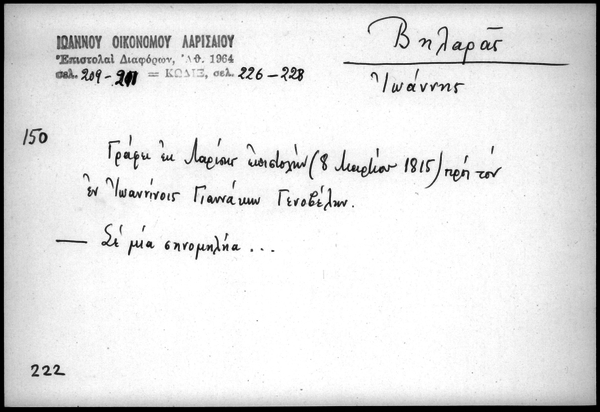 ΙΩΑΝΝΟΥ ΟΙΚΟΝΟΜΟΥ ΛΑΡΙΣΑΙΟΥ
Ἐπιστολαὶ Διαφόρων, Ἀθ. 1964
σελ. 209-211 = ΚΩΔΙΞ, σελ. 226-228
Βηλαρᾶς
Ἰωάννης
150
Γράφει ἐκ Λαρίσης ἐπιστολὴν (8 Μαρτίου 1815) πρὸς τὸν
ἐν Ἰωαννίνοις Γιαννάκην Γενοβέλην.
— Σὲ μία σηνομηλήα ...
222